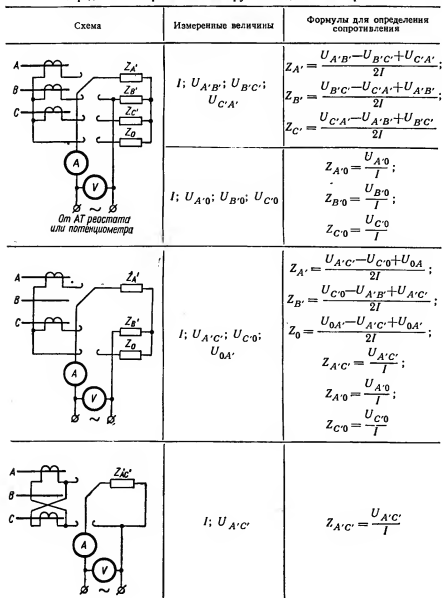 Схема
Измеренные величины
Формулы для определения
сопротивления
A
B
C
Z_A'
Z_B'
Z_C'
Z_0
A
V
~
От АТ реостата
или потенциометра
I; U_A'B'; U_B'C';
U_C'A'
Z_A' = (U_A'B' − U_B'C' + U_C'A') / 2I ;
Z_B' = (U_B'C' − U_C'A' + U_A'B') / 2I ;
Z_C' = (U_C'A' − U_A'B' + U_B'C') / 2I
I; U_A'0; U_B'0; U_C'0
Z_A'0 = U_A'0 / I ;
Z_B'0 = U_B'0 / I ;
Z_C'0 = U_C'0 / I
A
B
C
Z_A'
Z_B'
Z_0
A
V
~
I; U_A'C'; U_C'0;
U_0A'
Z_A' = (U_A'C' − U_C'0 + U_0A) / 2I
Z_B' = (U_C'0 − U_A'B' + U_A'C') / 2I ;
Z_0 = (U_0A' − U_A'C' + U_0A') / 2I ;
Z_A'C' = U_A'C' / I ;
Z_A'0 = U_A'0 / I ;
Z_C'0 = U_C'0 / I
A
B
C
Z_AC'
A
V
~
I; U_A'C'
Z_A'C' = U_A'C' / I